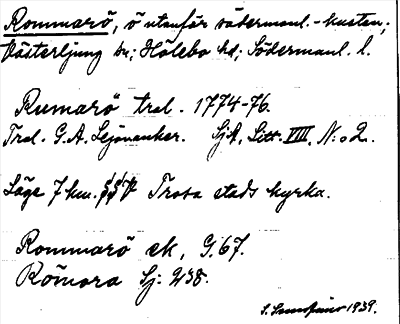 Rommarö, ö utanför södermanl.-kusten;
Västerljung sn; Hölebo hd; Södermanl. l.
Rumarö tral. 1774-76.
Tral. G.A. Lejonanker. SjA. Litt. VIII. N:o 2.
Läge 7 km. SSV Trosa stads kyrka.
Rommarö ek, G. 67.
Römora Sj. 238.
1939.